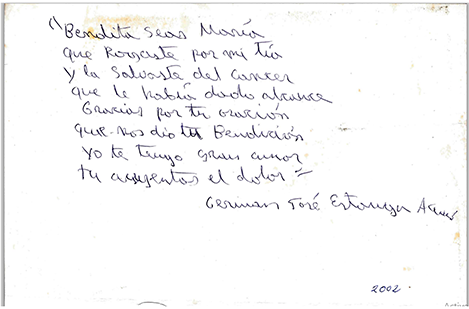 Bendita seas María
que Rogaste por mi tía
y la salvaste del cancer
que le había dado alcance
Gracias por tu oración
que nos dio tu Bendición
yo te tengo gran amor
tu auyentas el dolor
German José Estanga
2002.